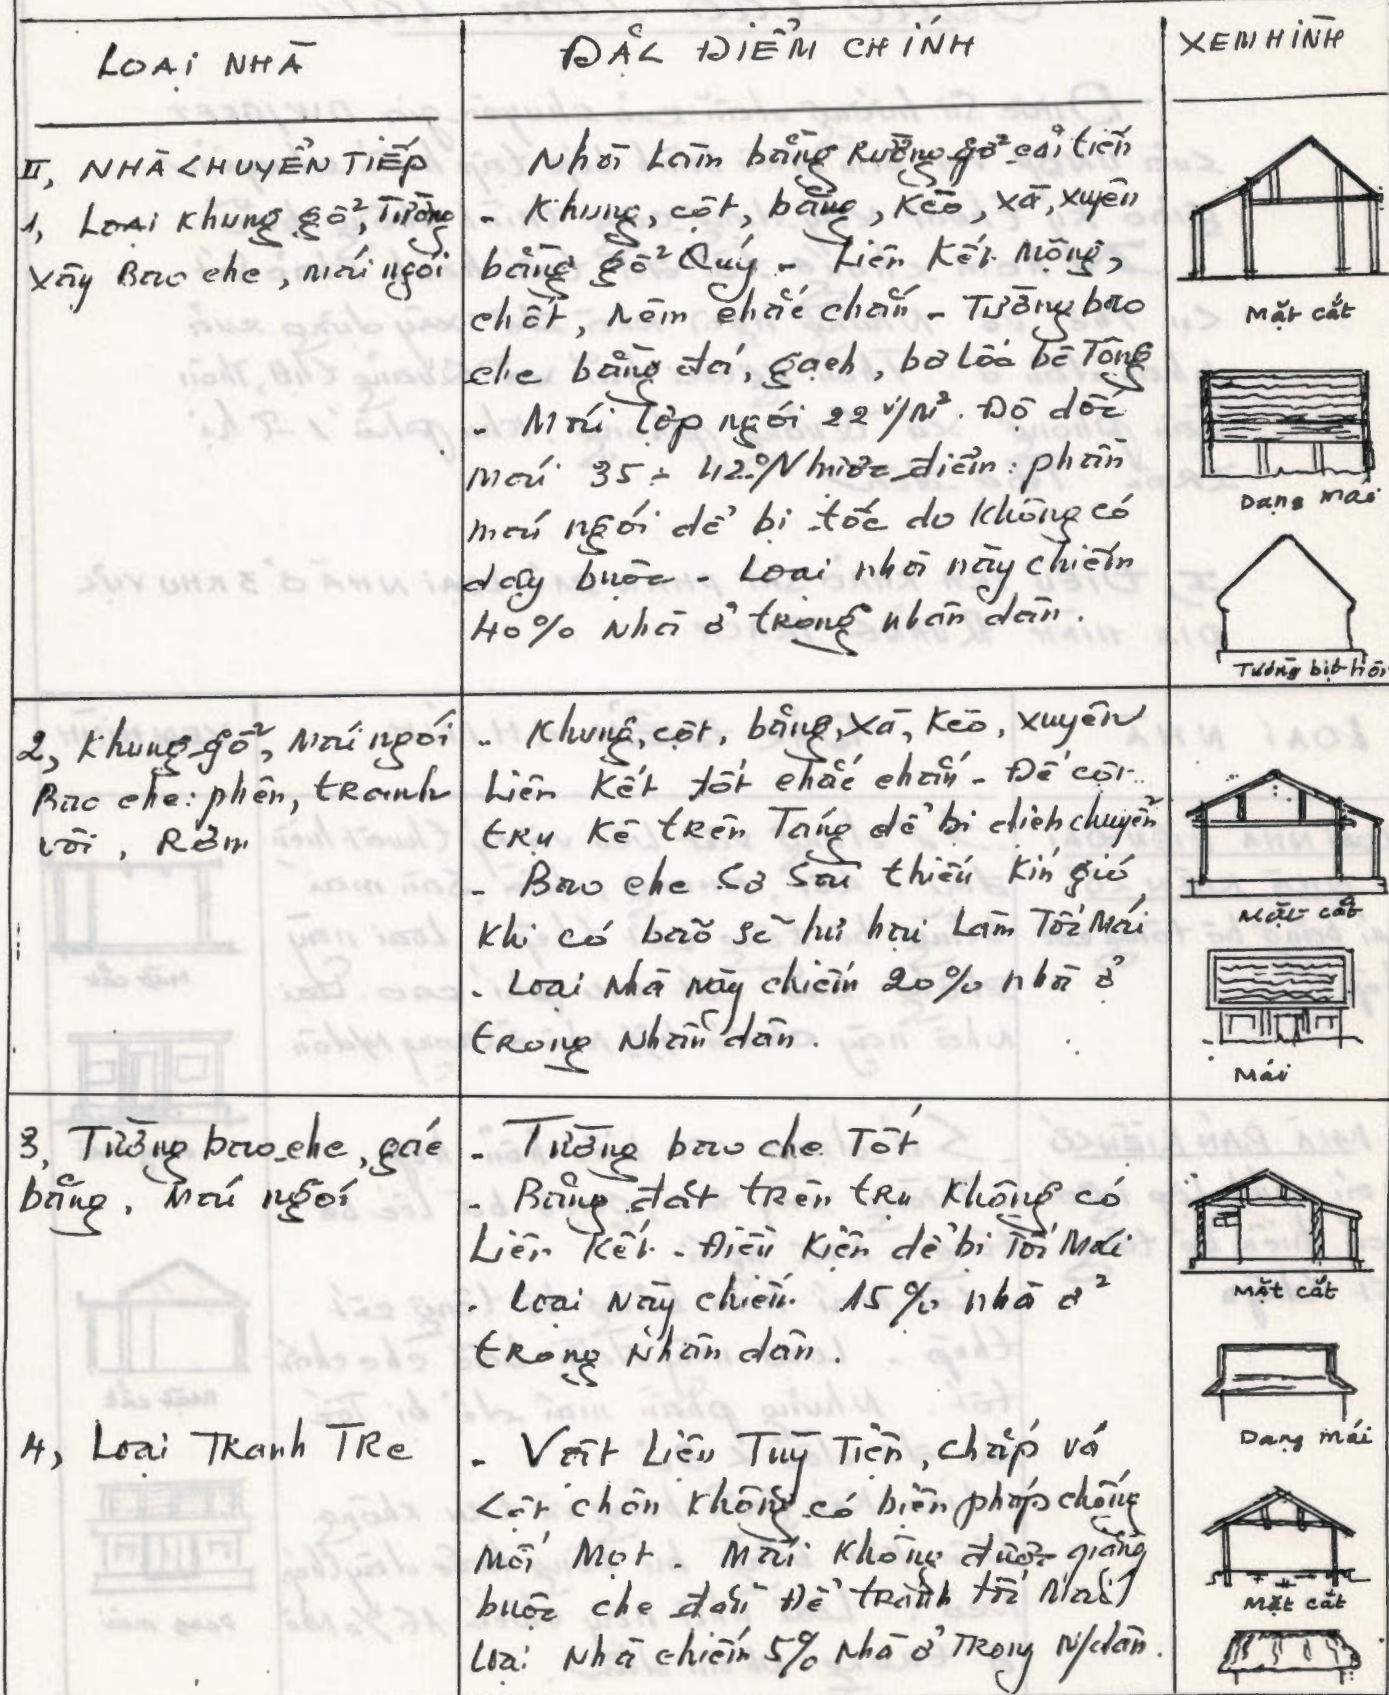 LOẠI NHÀ
ĐẶC ĐIỂM CHÍNH
XEM HÌNH
II, NHÀ CHUYỂN TIẾP
1, Loại khung gỗ, Tường
xây Bao che, mái ngói
Nhà làm bằng Rường gỗ cải tiến
- Khung, cột, bằng, kèo, xà, xuyên
bằng gỗ Quý - Liên kết mộng,
chốt, nêm chắc chắn - Tường bao
che bằng đá, gạch, bờ lốc bê Tông
- Mái lợp ngói 22 v/m². Độ dốc
mái 35 ÷ 42° Nhược điểm: phần
mái ngói dể bị tốc do không có
dây buộc - Loại nhà này chiếm
40% nhà ở trong nhân dân.
Mặt cắt
Dạng mái
Tường bịt hồi
2, Khung gỗ, Mái ngói
Bao che: phên, tranh
vôi, Rơm
- Khung, cột, bằng, xà, kèo, xuyên
Liên kết tốt chắc chắn - Đế cột
trụ kê trên Tảng dể bị dich chuyển
- Bao che Sơ Sài thiếu kín gió
khi có bão sẽ hư hại làm Tốc Mái
- Loại nhà này chiếm 20% nhà ở
trong nhân dân.
Mặt cắt
Mái
3, Tường bao che, gác
bằng, Mái ngói
- Tường bao che Tốt
- Bằng đặt trên trụ không có
Liên kết - Điều kiện dể bị Tốc Mái
- Loại này chiếm 15% nhà ở
trong nhân dân.
Mặt cắt
Dạng mái
4, Loại Tranh Tre
- Vật Liệu Tuỳ Tiện, chắp vá
Cột chôn không có biện pháp chống
Mối Mọt - Mái không được giằng
buộc che đậy Để tránh tốc Mái
Loại Nhà chiếm 5% Nhà ở Trong N/dân.
Mặt cắt